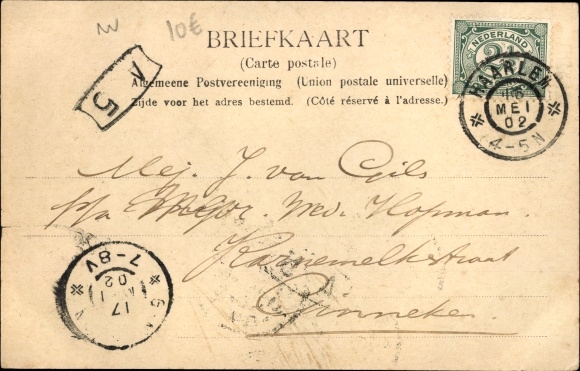 10€
BRIEFKAART
(Carte postale)
Algemeene Postvereeniging (Union postale universelle)
Zijde voor het adres bestemd. (Côté réservé à l'adresse.)
NEDERLAND
HAARLEM
16
MEI
02
4-5N
V 5
Mej. J. van Gils
p/a Wed. Hopman.
Karnemelkstraat
Ginneken.
7-8V
02
17